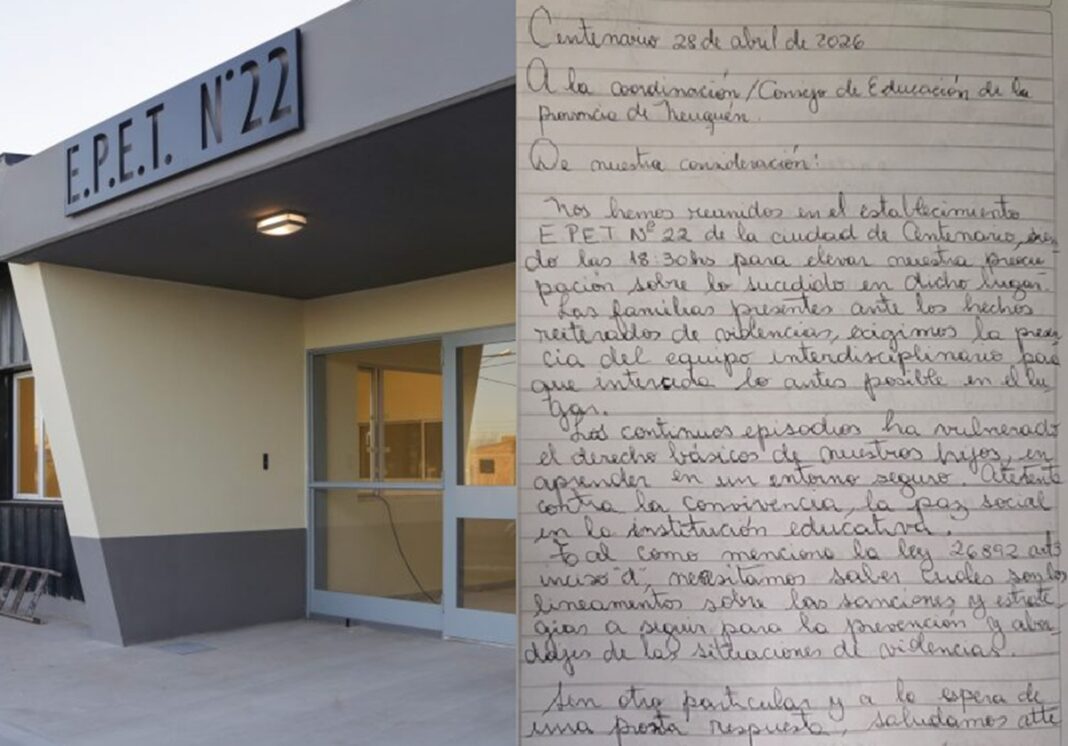 E.P.E.T. N°22
Centenario 28 de abril de 2026
A la coordinación/Consejo de Educación de la
provincia de Neuquén.
De nuestra consideración:
Nos hemos reunidos en el establecimiento
EPET Nº 22 de la ciudad de Centenario, sien
do las 18:30hs para elevar nuestra preocu
pación sobre lo sucedido en dicho lugar.
Las familias presentes ante los hechos
reiterados de violencias, exigimos la presen
cia del equipo interdisciplinario para
que interceda lo antes posible en el lu
gar.
Los continuos episodios ha vulnerado
el derecho básicos de nuestros hijos, en
aprender en un entorno seguro. Atenta
contra la convivencia, la paz social
en la institución educativa.
Tal como menciona la ley 26892 art3
inciso "d", necesitamos saber cuales son los
lineamentos sobre las sanciones, y estrate
gias a seguir para la prevención y abor-
dajes de las situaciones de violencias.
Sin otro particular y a la espera de
una pronta respuesta, saludamos atte